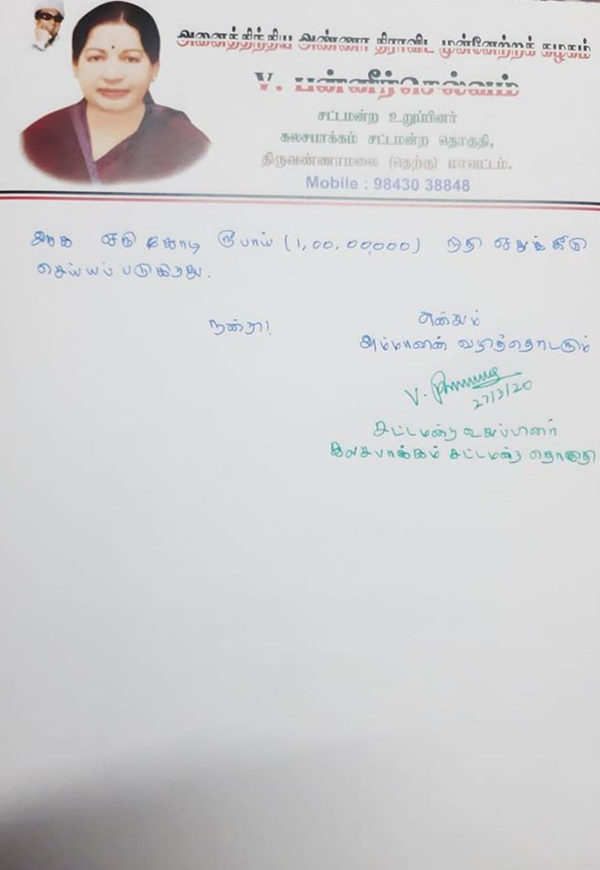 அனைத்திந்திய அண்ணா திராவிட முன்னேற்றக் கழகம்
V. பன்னீர்செல்வம்
சட்டமன்ற உறுப்பினர்
கலசபாக்கம் சட்டமன்ற தொகுதி,
திருவண்ணாமலை (தெற்கு) மாவட்டம்.
Mobile : 98430 38848
ஆக ஒரு கோடி ரூபாய் (1,00,00,000) நிதி ஒதுக்கீடு
செய்யப் படுகிறது.
நன்றி!
என்றும்
அம்மாவின் வழித்தொடரும்
V.
27/3/20
சட்டமன்ற உறுப்பினர்
கலசபாக்கம் சட்டமன்ற தொகுதி